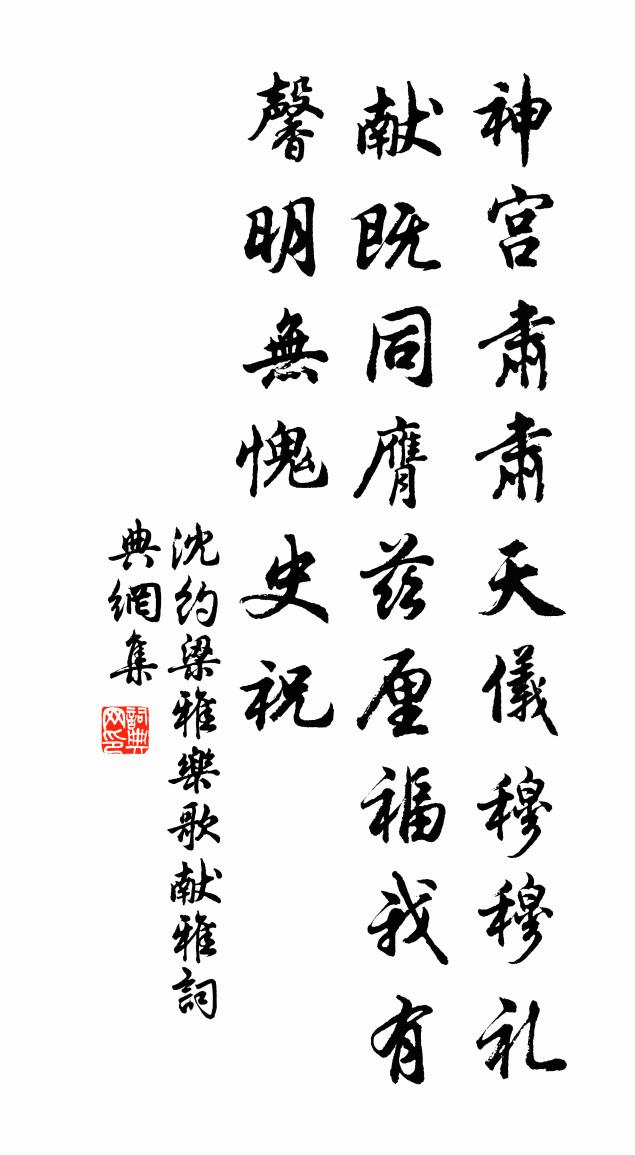 神宫肃肃天儀穆穆礼
献既同膺兹厘福我有
馨明無愧史祝
沈约梁雅樂歌献雅詞
典網集
詞典网印